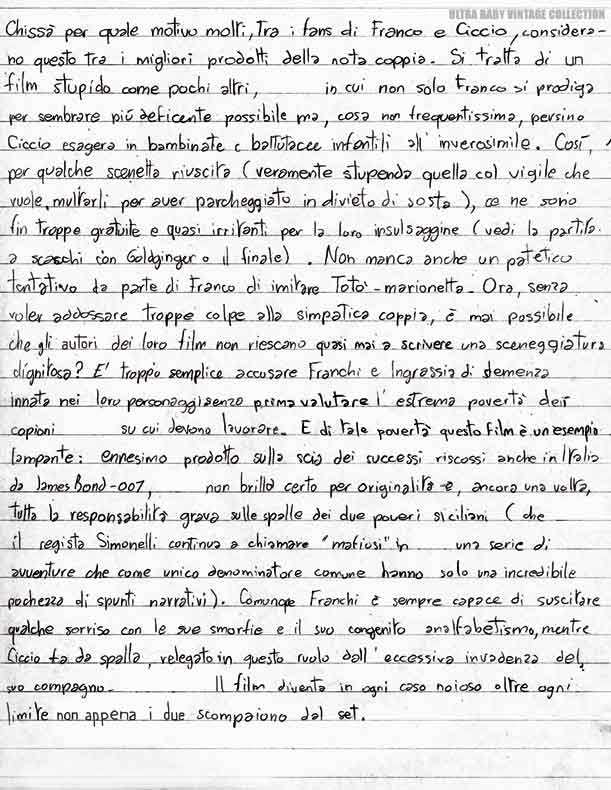 ULTRA BABY VINTAGE COLLECTION
Chissà per quale motivo molti, tra i fans di Franco e Ciccio, considera-
no questo tra i migliori prodotti della nota coppia. Si tratta di un
film stupido come pochi altri, in cui non solo Franco si prodiga
per sembrare più deficente possibile ma, cosa non frequentissima, persino
Ciccio esagera in bambinate e battutacce infantili all'inverosimile. Così,
per qualche scenetta riuscita (veramente stupenda quella col vigile che
vuole multarli per aver parcheggiato in divieto di sosta), ce ne sono
fin troppe gratuite e quasi irritanti per la loro insulsaggine (vedi la partita
a scacchi con Goldginger o il finale). Non manca anche un patetico
tentativo da parte di Franco di imitare Totò-marionetta. Ora, senza
voler addossare troppe colpe alla simpatica coppia, è mai possibile
che gli autori dei loro film non riescano quasi mai a scrivere una sceneggiatura
dignitosa? E' troppo semplice accusare Franchi e Ingrassia di demenza
innata nei loro personaggi senza prima valutare l'estrema povertà dei
copioni su cui devono lavorare. E di tale povertà questo film è un esempio
lampante: ennesimo prodotto sulla scia dei successi riscossi anche in Italia
da James Bond-007, non brilla certo per originalità e, ancora una volta,
tutta la responsabilità grava sulle spalle dei due poveri siciliani (che
il regista Simonelli continua a chiamare "mafiosi" in una serie di
avventure che come unico denominatore comune hanno solo una incredibile
pochezza di spunti narrativi). Comunque Franchi è sempre capace di suscitare
qualche sorriso con le sue smorfie e il suo congenito analfabetismo, mentre
Ciccio fa da spalla, relegato in questo ruolo dall'eccessiva invadenza del
suo compagno. Il film diventa in ogni caso noioso oltre ogni
limite non appena i due scompaiono dal set.